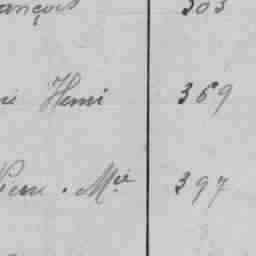 ançois 303
é Henri 369
Pierre . Mie 397